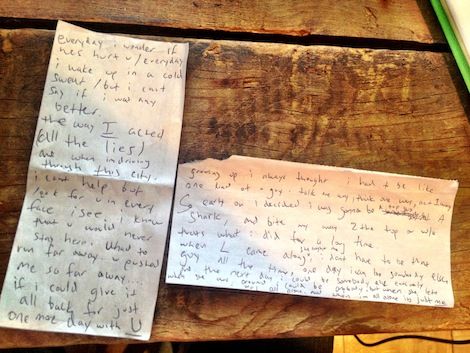 everyday i wonder if
hes hurt u / everyday
i wake up in a cold
sweat / but i cant
say if i was any
better.
the way I acted
(all the lies)
and when im driving
through this city.
i cant help but
look for u in every
face i see. i know
that u would never
stay here. u had to
run far away. u pushed
me so far away...
if i could give it
all back for just
one more day with U
growing up i always thought i had to be like
one kind of a guy.
So early on i decided i was gonna be A
shark. and bite my way 2 the top or w/e
thats what i did for a long time
when L came along i didnt have to be that
guy all the time. one day i can be somebody else
and the next day i could be somebody else entirely
when she was around i could be anybody. but when she left
was all alone. and when im all alone is just me